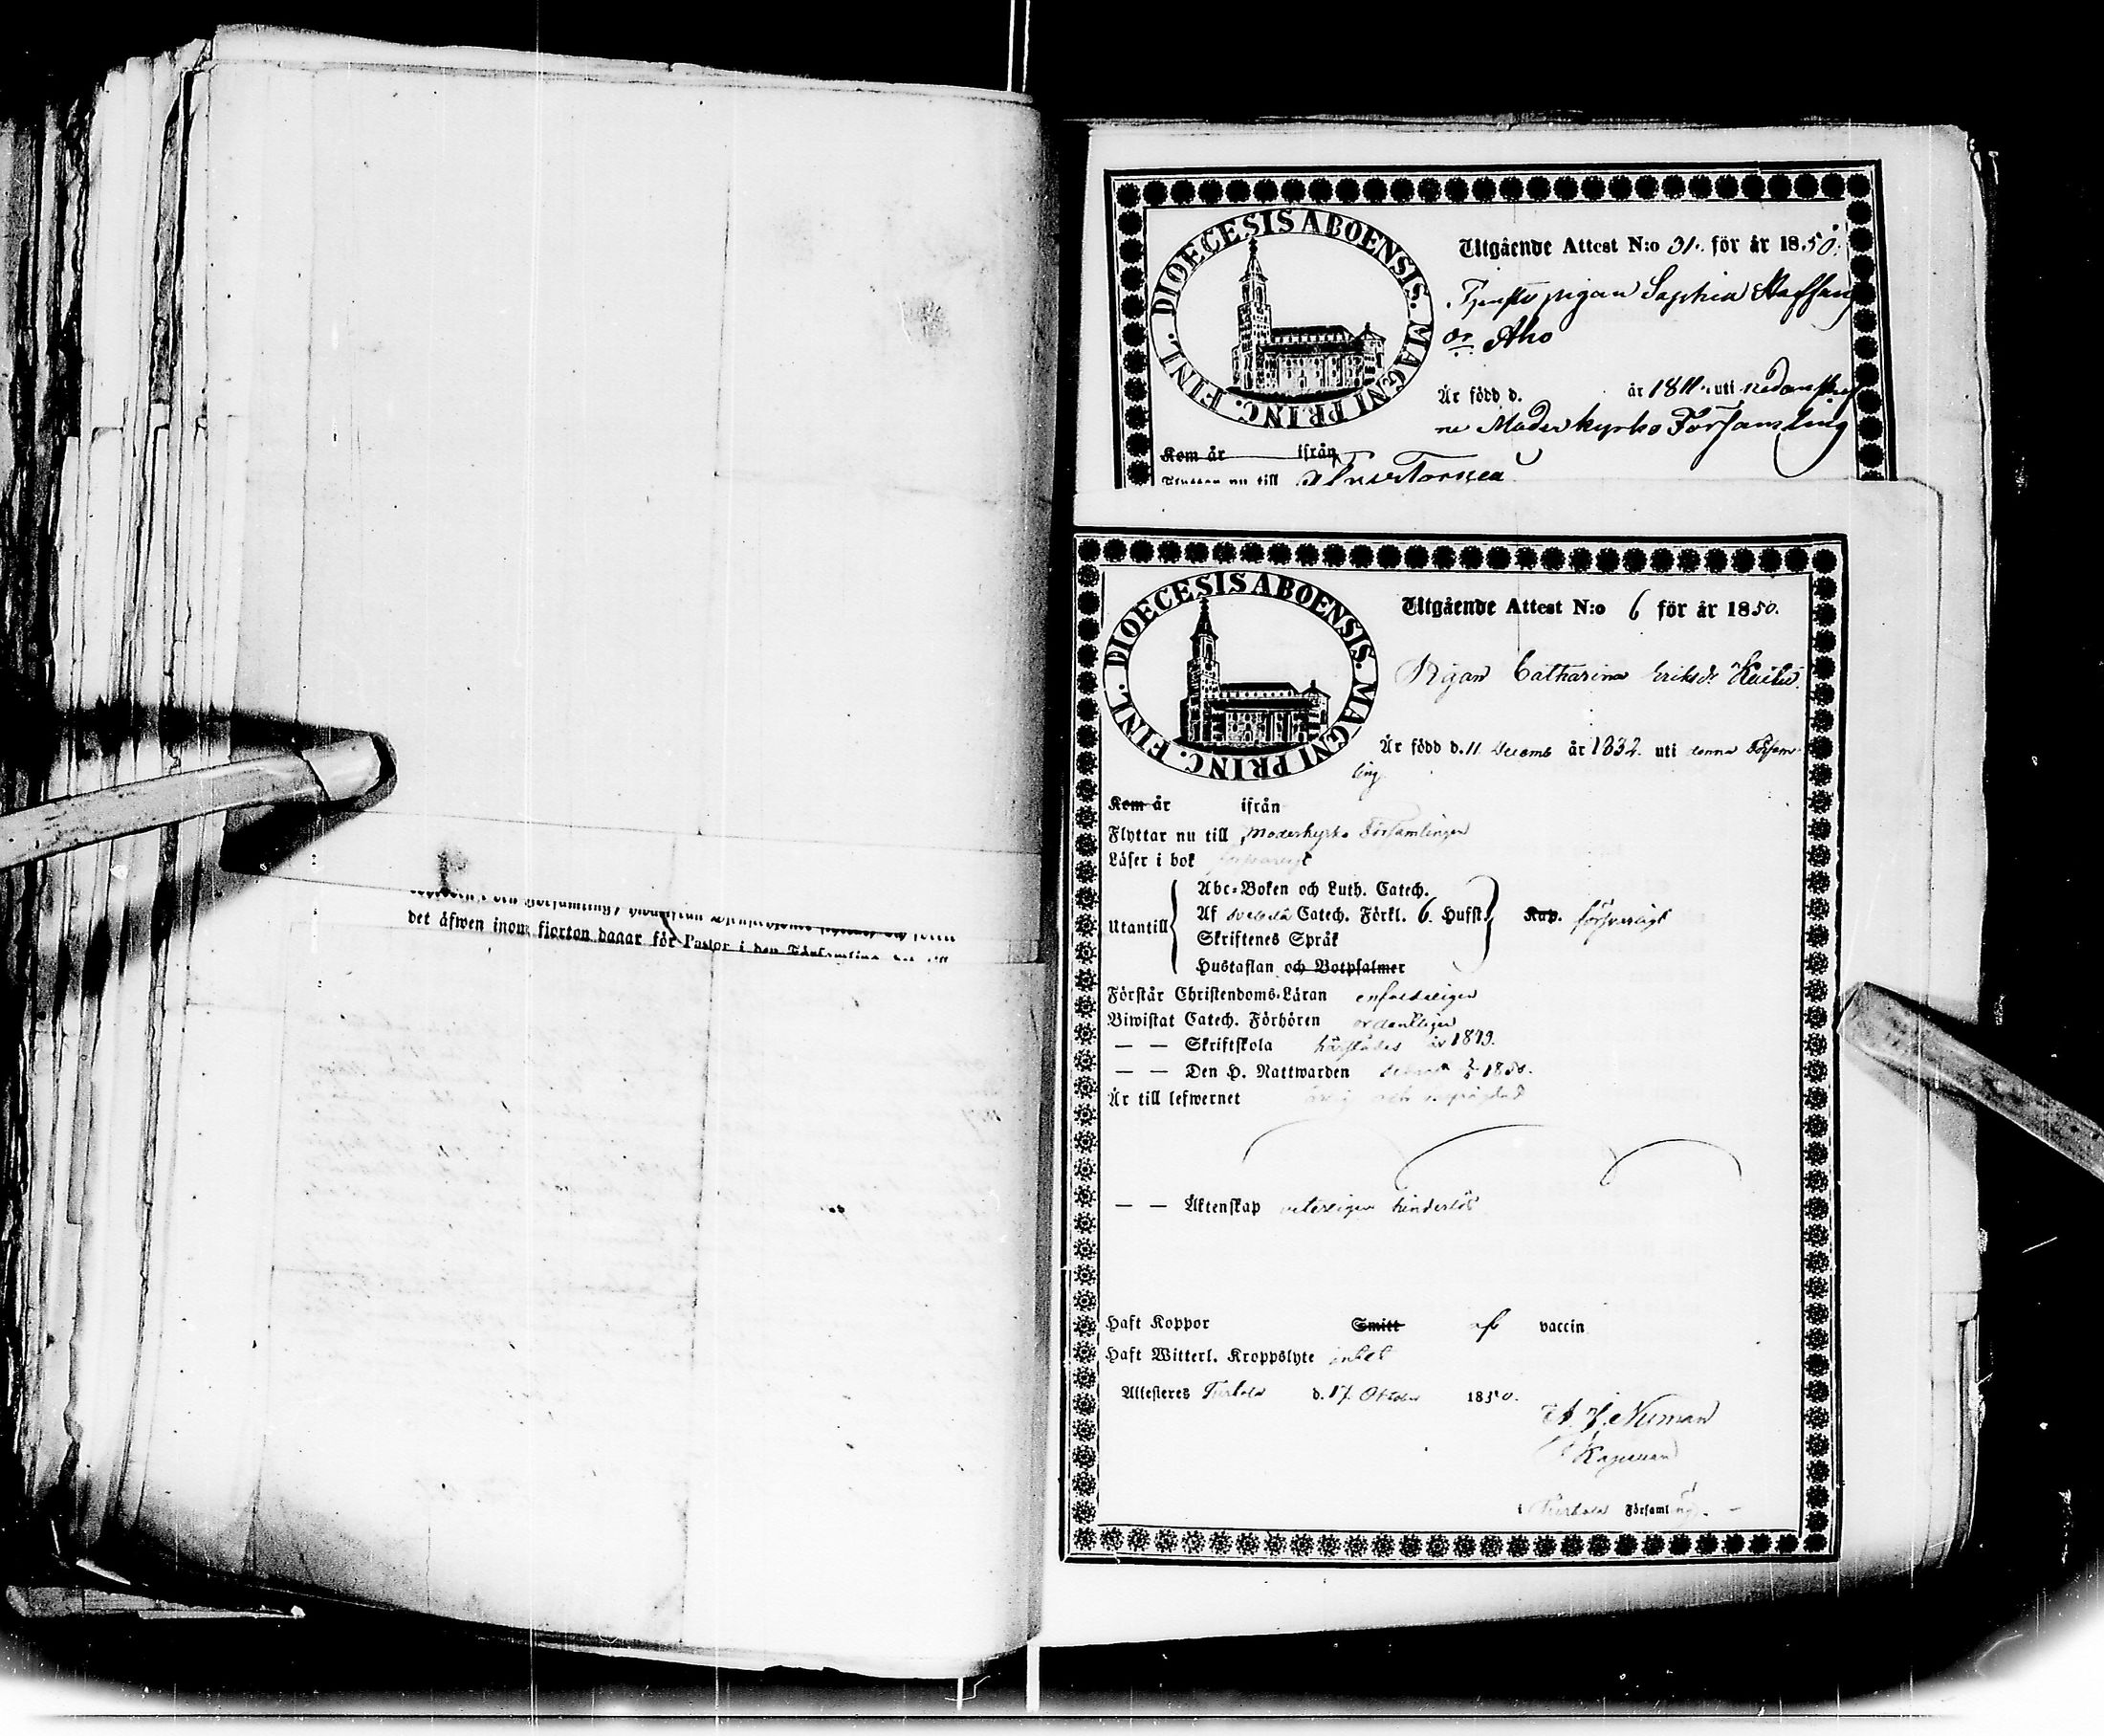 det äfwen inom fjorton dagar för Pastor i den Församling
DIOECESIS ABOENSIS. MAGNI PRINC. FINL.
Utgående Attest N:o 31. för år 1850.
Tjenstepigan Sophia Staffans
dr Aho
Är född d. år 1811. uti nedanskref
ne Moderkyrko Församling
Kom år ifrån
Flyttar nu till Öfvertorneå
DIOECESIS ABOENSIS. MAGNI PRINC. FINL.
Utgående Attest N:o 6 för år 1850.
Pigan Catharina Eriksdr
Är född d. 11 Decemb år 1832. uti denna Försam-
ling
Kom år ifrån
Flyttar nu till Moderkyrko Församlingen
Läser i bok försvarligt
Utantill
Abc-Boken och Luth. Catech.
Af Svebelii Catech. Förkl. 6. Hufst. Kap. försvarligt
Skriftenes Språk
Hustaflan och Botpsalmer
Förstår Christendoms-Läran enfaldeligen
Biwistat Catech. Förhören ordentligen
— — Skriftskola härstädes år 1849.
— — Den H. Nattwarden 1850.
Är till lefwernet ärlig och
— — Äktenskap veterligen hinderlös
Haft Koppor Smitt af vaccin
Haft Witterl. Kroppslyte intet
Attesteres Turtola d. 17. Oktober 1850.
Numan
Kapellan
i Turtola Församling.